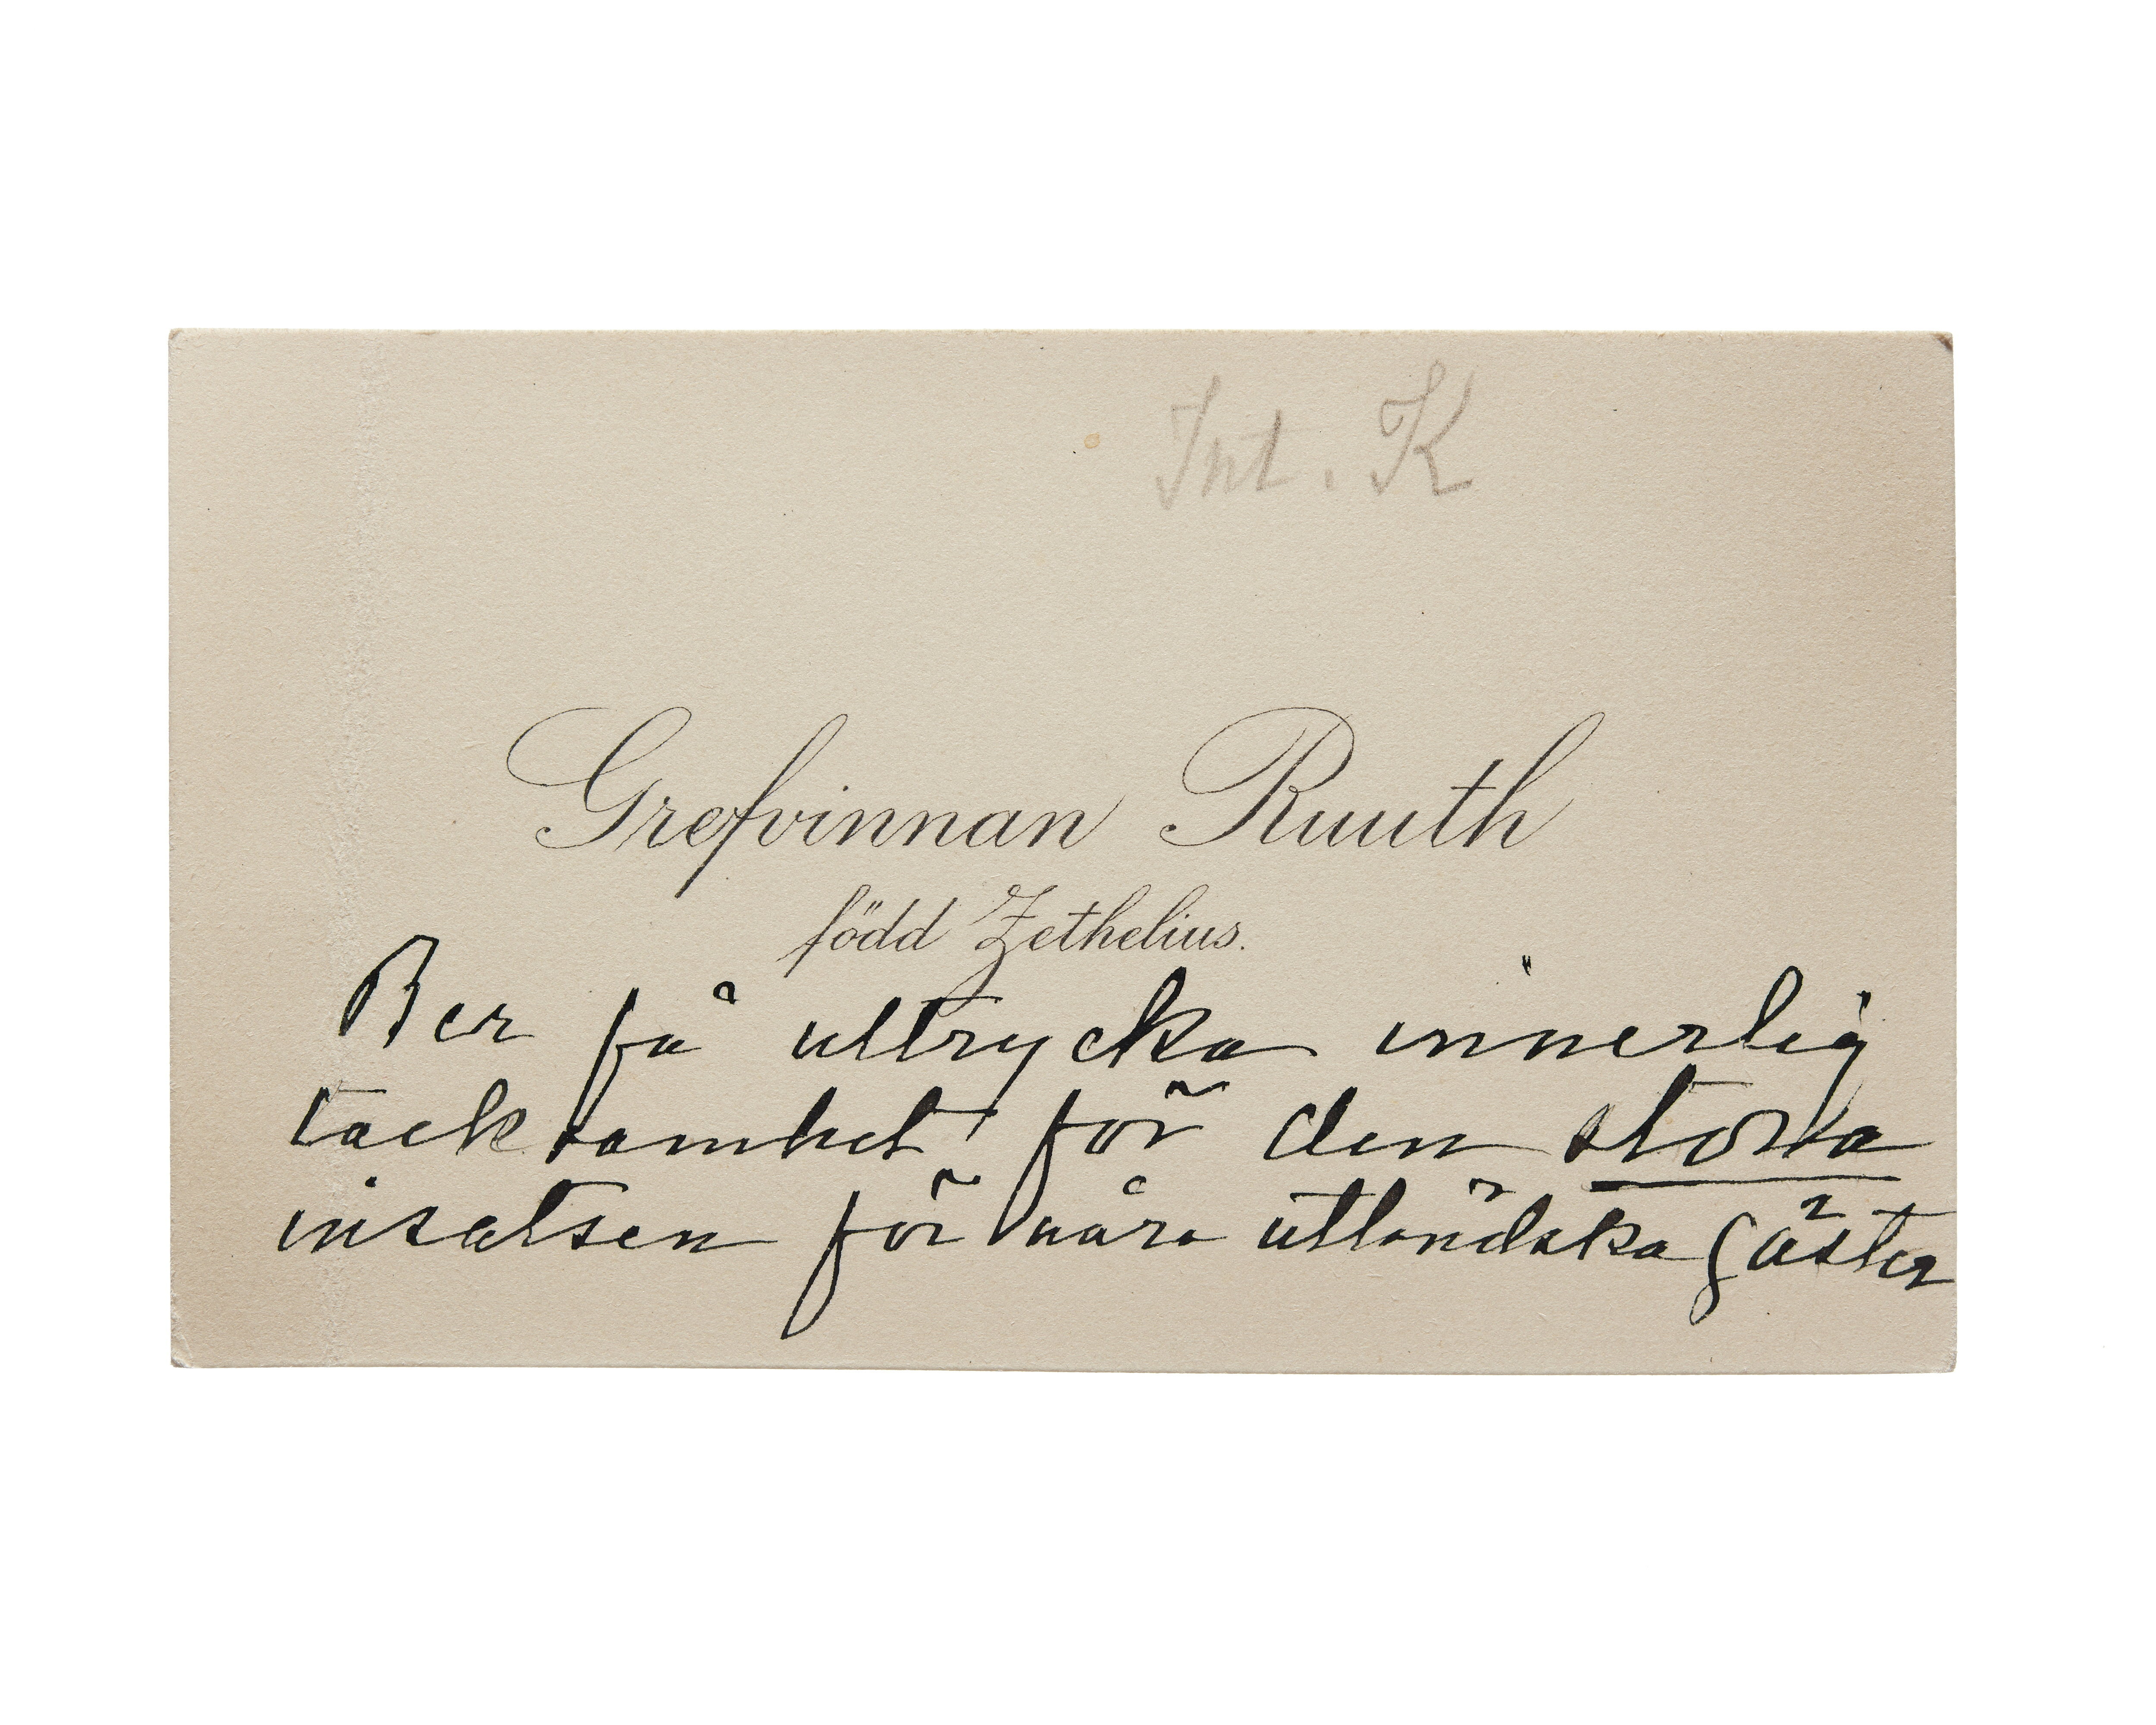 Int. K
Grefvinnan Ruuth
född Zethelius.
Ber få uttrycka innerlig
tacksamhet för den stora
insatsen för våra utländska gäster